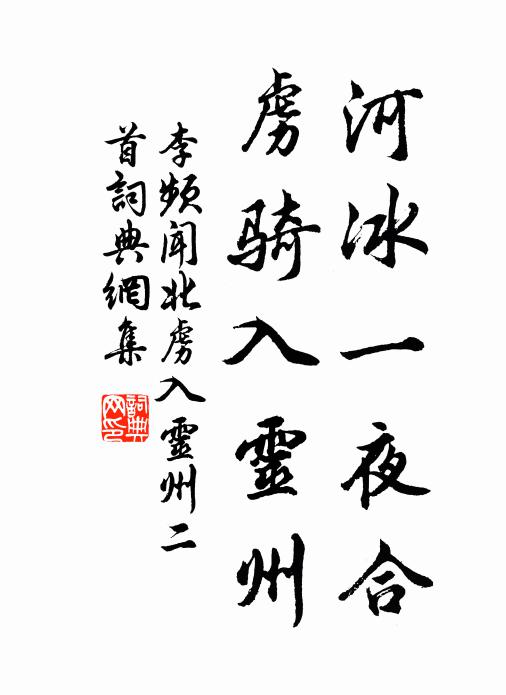 河冰一夜合
虜騎入靈州
李頻聞北虜入靈州二
首詞典網集
詞典
网印